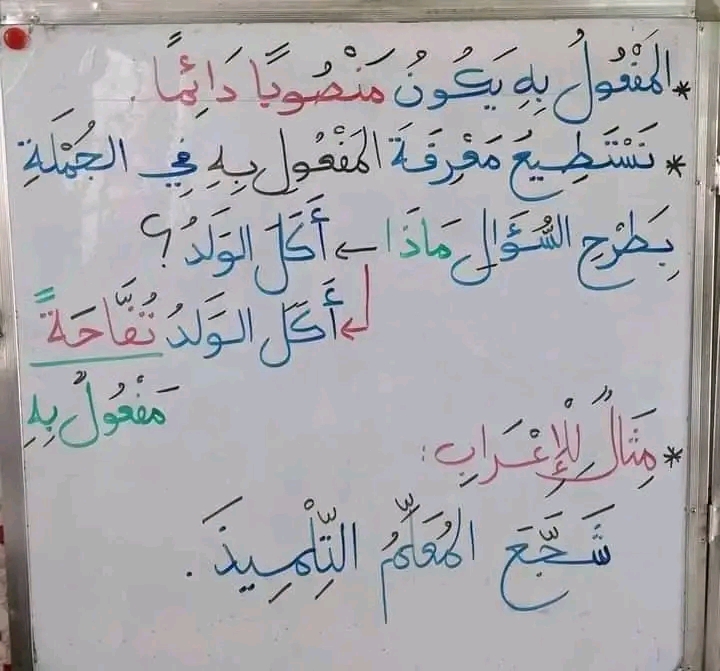 * المَفْعُولُ بِهِ يَكُونُ مَنْصُوبًا دَائِمًا .
* نَسْتَطِيعُ مَعْرِفَةَ المَفْعُولِ بِهِ فِي الجُمْلَةِ
بِطَرْحِ السُّؤَالِ مَاذَا ← أَكَلَ الوَلَدُ ؟
↲ أَكَلَ الوَلَدُ تُفَّاحَةً
مَفْعُولٌ بِهِ
* مِثَالٌ لِلْإِعْرَابِ :
شَجَّعَ المُعَلِّمُ التِّلْمِيذَ .